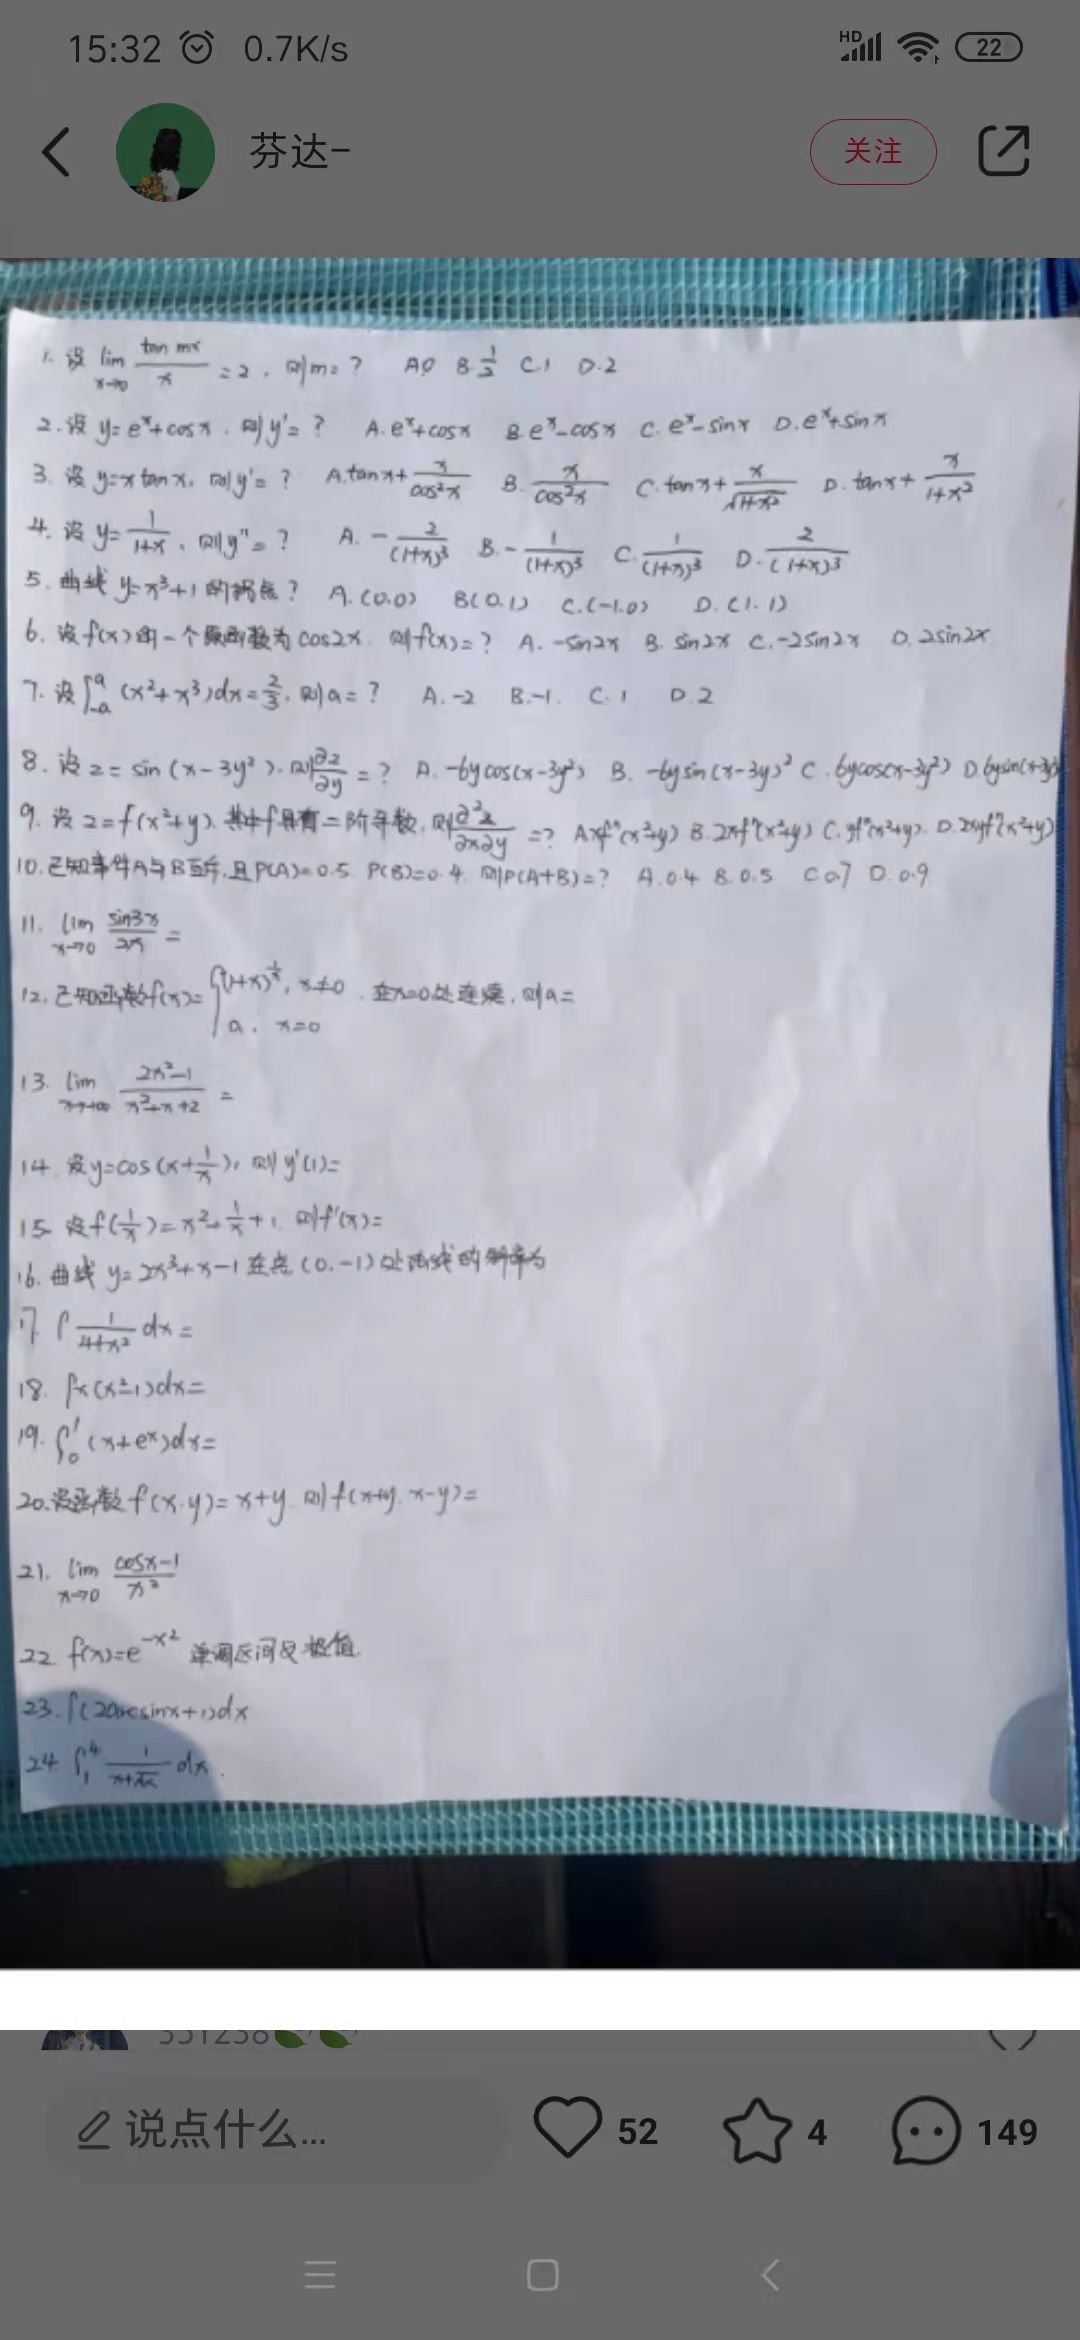 15:32 0.7K/s HD 22
芬达- 关注
1. 设 lim x→0 tan mx / x = 2, 则m=? A.0 B.1/2 C.1 D.2
2. 设 y=e^x+cosx, 则y'=? A.e^x+cosx B.e^x-cosx C.e^x-sinx D.e^x+sinx
3. 设 y=xtanx, 则y'=? A.tanx+x/cos²x B.x/cos²x C.tanx+x/√(1+x²) D.tanx+x/(1+x²)
4. 设 y=1/(1+x), 则y''=? A.-2/(1+x)³ B.-1/(1+x)³ C.1/(1+x)³ D.2/(1+x)³
5. 曲线 y=x³+1 的拐点? A.(0.0) B(0.1) C.(-1.0) D.(1.1)
6. 设f(x)的一个原函数为cos2x. 则f(x)=? A.-sin2x B.sin2x C.-2sin2x D.2sin2x
7. 设∫_{-a}^{a}(x²+x³)dx=2/3, 则a=? A.-2 B.-1. C.1 D.2
8. 设z=sin(x-3y²). 则∂z/∂y=? A.-6ycos(x-3y²) B.-6ysin(x-3y)² C.6ycos(x-3y²) D.6ysin(x+3y
9. 设z=f(x²+y). 其中f具有二阶导数, 则∂²z/∂x∂y=? A.xf''(x²+y) B.2xf''(x²+y) C.yf''(x²+y). D.2xyf''(x²+y)
10. 已知事件A与B互斥, 且P(A)=0.5 P(B)=0.4. 则P(A+B)=? A.0.4 B.0.5 C.0.7 D.0.9
11. lim x→0 sin3x/2x =
12. 已知函数f(x)={(1+x)^{1/x}, x≠0 a, x=0 . 在x=0处连续, 则a=
13. lim x→∞ (2x²-1)/(x²+x+2) =
14. 设y=cos(x+1/x), 则y'(1)=
15. 设f(1/x)=x²+1/x+1, 则f'(x)=
16. 曲线 y=2x³+x-1 在点(0,-1)处法线的斜率为
17. ∫1/(4+x²)dx=
18. ∫x(x²-1)dx=
19. ∫_0^1(x+e^x)dx=
20. 设函数f(x.y)=x+y 则f(x+y, x-y)=
21. lim x→0 (cosx-1)/x²
22 f(x)=e^{-x²} 单调区间及极值
23. ∫(2arcsinx+1)dx
24 ∫_1^4 1/(x+√x) dx.
351238
说点什么... 52 4 149